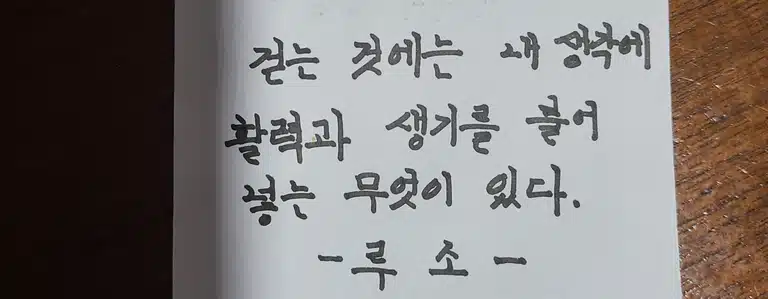 걷는 것에는 내 생각에
활력과 생기를 불어
넣는 무엇이 있다.
-루 소-